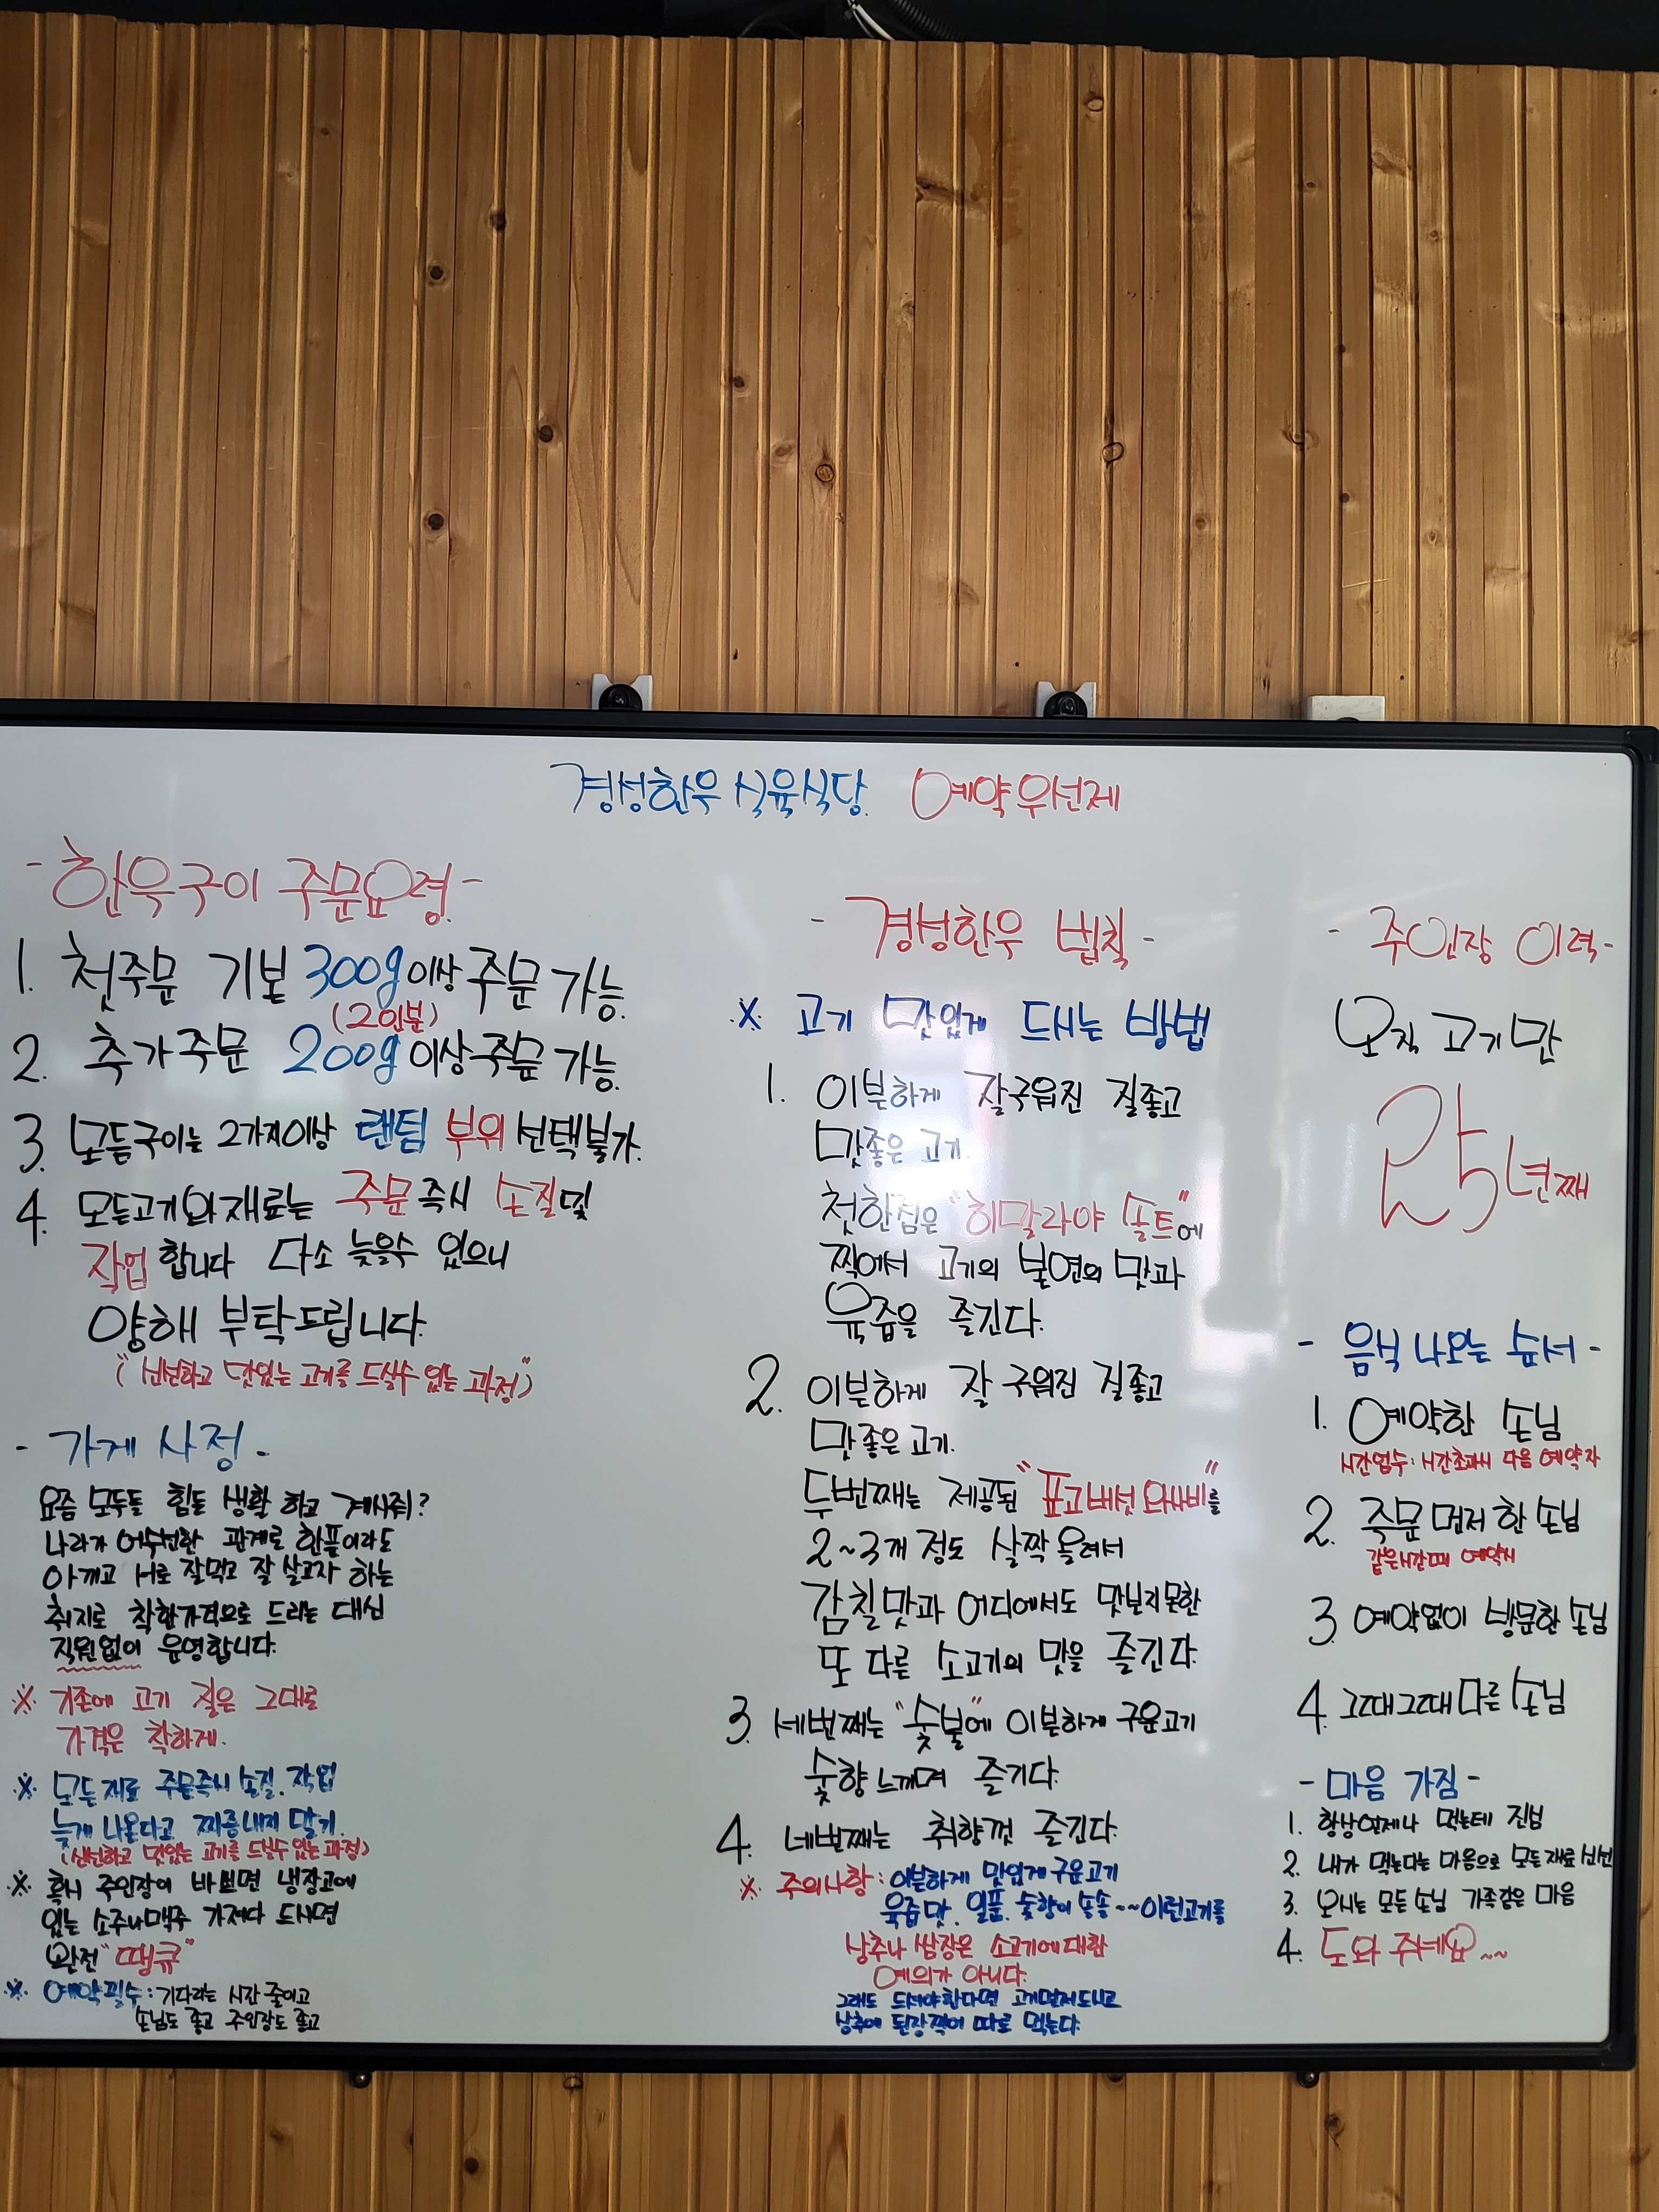 경성한우 식육식당 예약우선제
- 한우구이 주문요령 -
1. 첫주문 기본 300g이상 주문 가능.
(2인분)
2. 추가주문 200g이상 주문 가능.
3. 모듬구이는 2가지이상 랜덤 부위 선택불가.
4. 모든고기와 재료는 주문 즉시 손질및
작업합니다 다소 늦을수 있으니
양해 부탁드립니다.
("신선하고 맛있는 고기를 드실수 있는 과정")
- 가게 사정 -
요즘 모두들 힘들 생활 하고 계시죠?
나라가 어수선한 관계로 한푼이라도
아끼고 서로 잘먹고 잘 살고자 하는
취지로 착한가격으로 드리는 대신
직원없이 운영합니다.
※ 기존에 고기 질은 그대로
가격은 착하게.
※ 모든재료 주문즉시 손질.작업
늦게 나온다고 짜증내지 말기.
(신선하고 맛있는 고기를 드실수 있는 과정)
※ 혹시 주인장이 바쁘면 냉장고에
있는 소주나맥주 가져다 드시면
완전 "땡큐"
※ 예약필수: 기다리는 시간 줄이고
손님도 좋고 주인장도 좋고
- 경성한우 법칙 -
※ 고기 맛있게 드시는 방법
1. 이븐하게 잘구워진 질좋고
맛좋은 고기.
첫한점은 "히말라야 솔트"에
찍어서 고기의 본연의 맛과
육즙을 즐긴다.
2. 이븐하게 잘 구워진 질좋고
맛좋은 고기.
두번째는 제공된 "표고버섯 와사비"를
2~3개 정도 살짝 올려서
감칠맛과 어디에서도 맛보지못한
또 다른 소고기의 맛을 즐긴다.
3. 세번째는 "숯불"에 이븐하게 구운고기
숯향 느끼며 즐긴다.
4. 네번째는 취향껏 즐긴다.
※ 주의사항: 이븐하게 맛있게 구운고기
육즙맛. 일품. 숯향이 솔솔~~이런고기를
상추나 쌈장은 소고기에 대한
예의가 아니다.
그래도 드셔야한다면 고기먼저드시고
상추에 된장찍어 따로 먹는다.
- 주인장 이력 -
오직 고기만
25년째
- 음식 나오는 순서 -
1. 예약한 손님
시간엄수: 시간초과시 다음 예약자
2. 주문 먼저 한 손님
같은시간때 예약시
3. 예약없이 방문한 손님
4. 그때그때 다른 손님
- 마음 가짐 -
1. 항상언제나 먹는데 진심
2. 내가 먹는다는 마음으로 모든재료 신선
3. 오시는 모든 손님 가족같은 마음
4. 도와 주세요~~